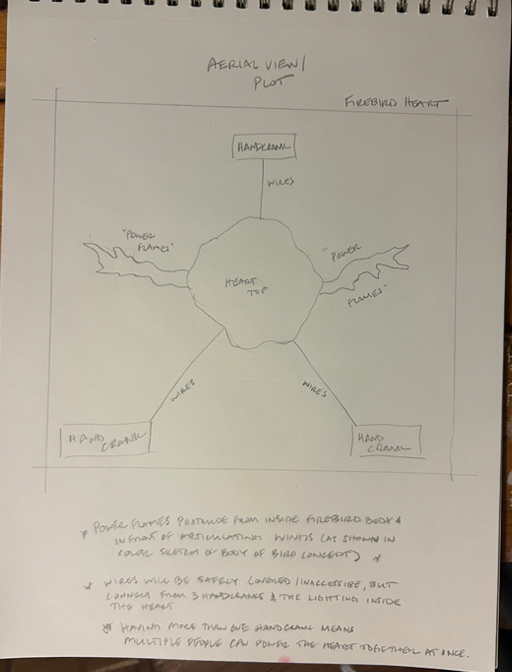 AERIAL VIEW/
PLOT
FIREBIRD HEART
HANDCRANK
WIRES
"POWER
FLAMES"
"POWER
FLAMES"
HEART
TOP
WIRES
WIRES
HAND
CRANK
HAND
CRANK
* POWER FLAMES PROTRUDE FROM INSIDE FIREBIRD BODY &
IN FRONT OF ARTICULATING WINGS (AS SHOWN IN
COLOR SKETCH OF BODY OF BIRD CONCEPT) *
* WIRES WILL BE SAFELY COVERED/INACCESSIBLE, BUT
CONNECT FROM 3 HANDCRANKS & THE LIGHTING INSIDE
THE HEART
* HAVING MORE THAN ONE HANDCRANK MEANS
MULTIPLE PEOPLE CAN POWER THE HEART TOGETHER AT ONCE.